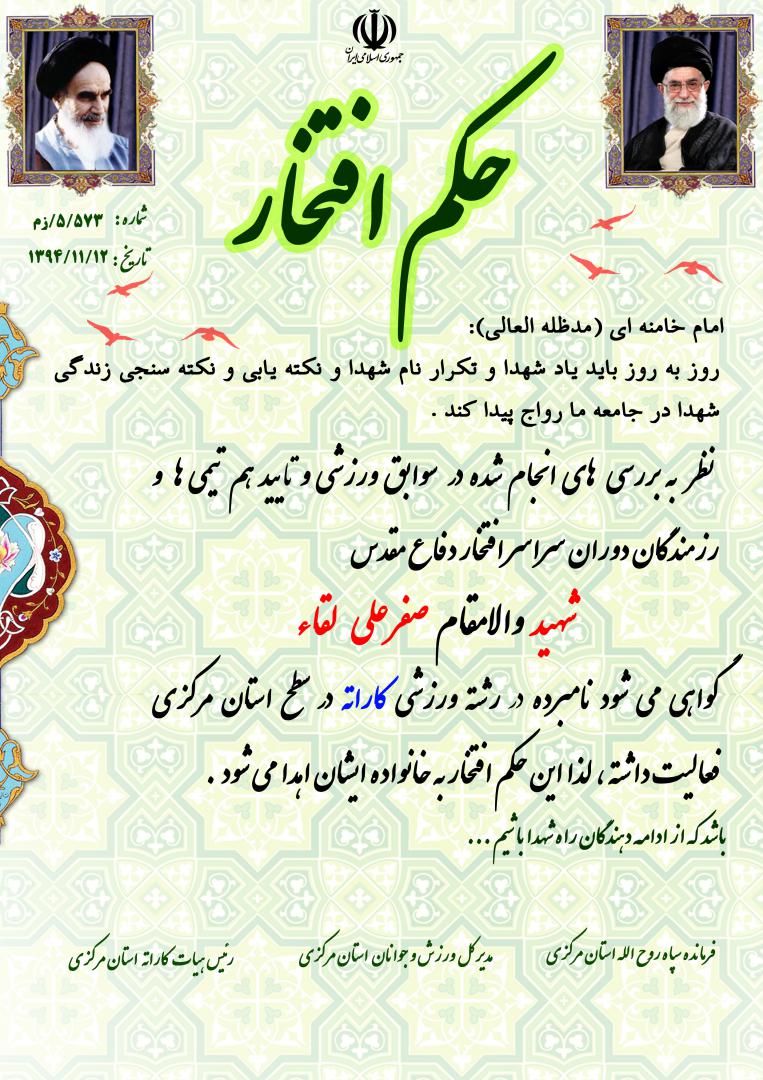 جمهوری اسلامی ایران
حکم افتخار
شماره: ۵/۵۷۳/زم
تاریخ: ۱۳۹۴/۱۱/۱۲
امام خامنه ای (مدظله العالی):
روز به روز باید یاد شهدا و تکرار نام شهدا و نکته یابی و نکته سنجی زندگی
شهدا در جامعه ما رواج پیدا کند .
نظر به بررسی های انجام شده در سوابق ورزشی و تایید هم تیمی ها و
رزمندگان دوران سراسر افتخار دفاع مقدس
شهید والامقام صفرعلی لقاء
گواهی می شود نامبرده در رشته ورزشی کاراته در سطح استان مرکزی
فعالیت داشته ، لذا این حکم افتخار به خانواده ایشان اهدا می شود .
باشد که از ادامه دهندگان راه شهدا باشیم ...
فرمانده سپاه روح الله استان مرکزی
مدیر کل ورزش و جوانان استان مرکزی
رئیس هیات کاراته استان مرکزی